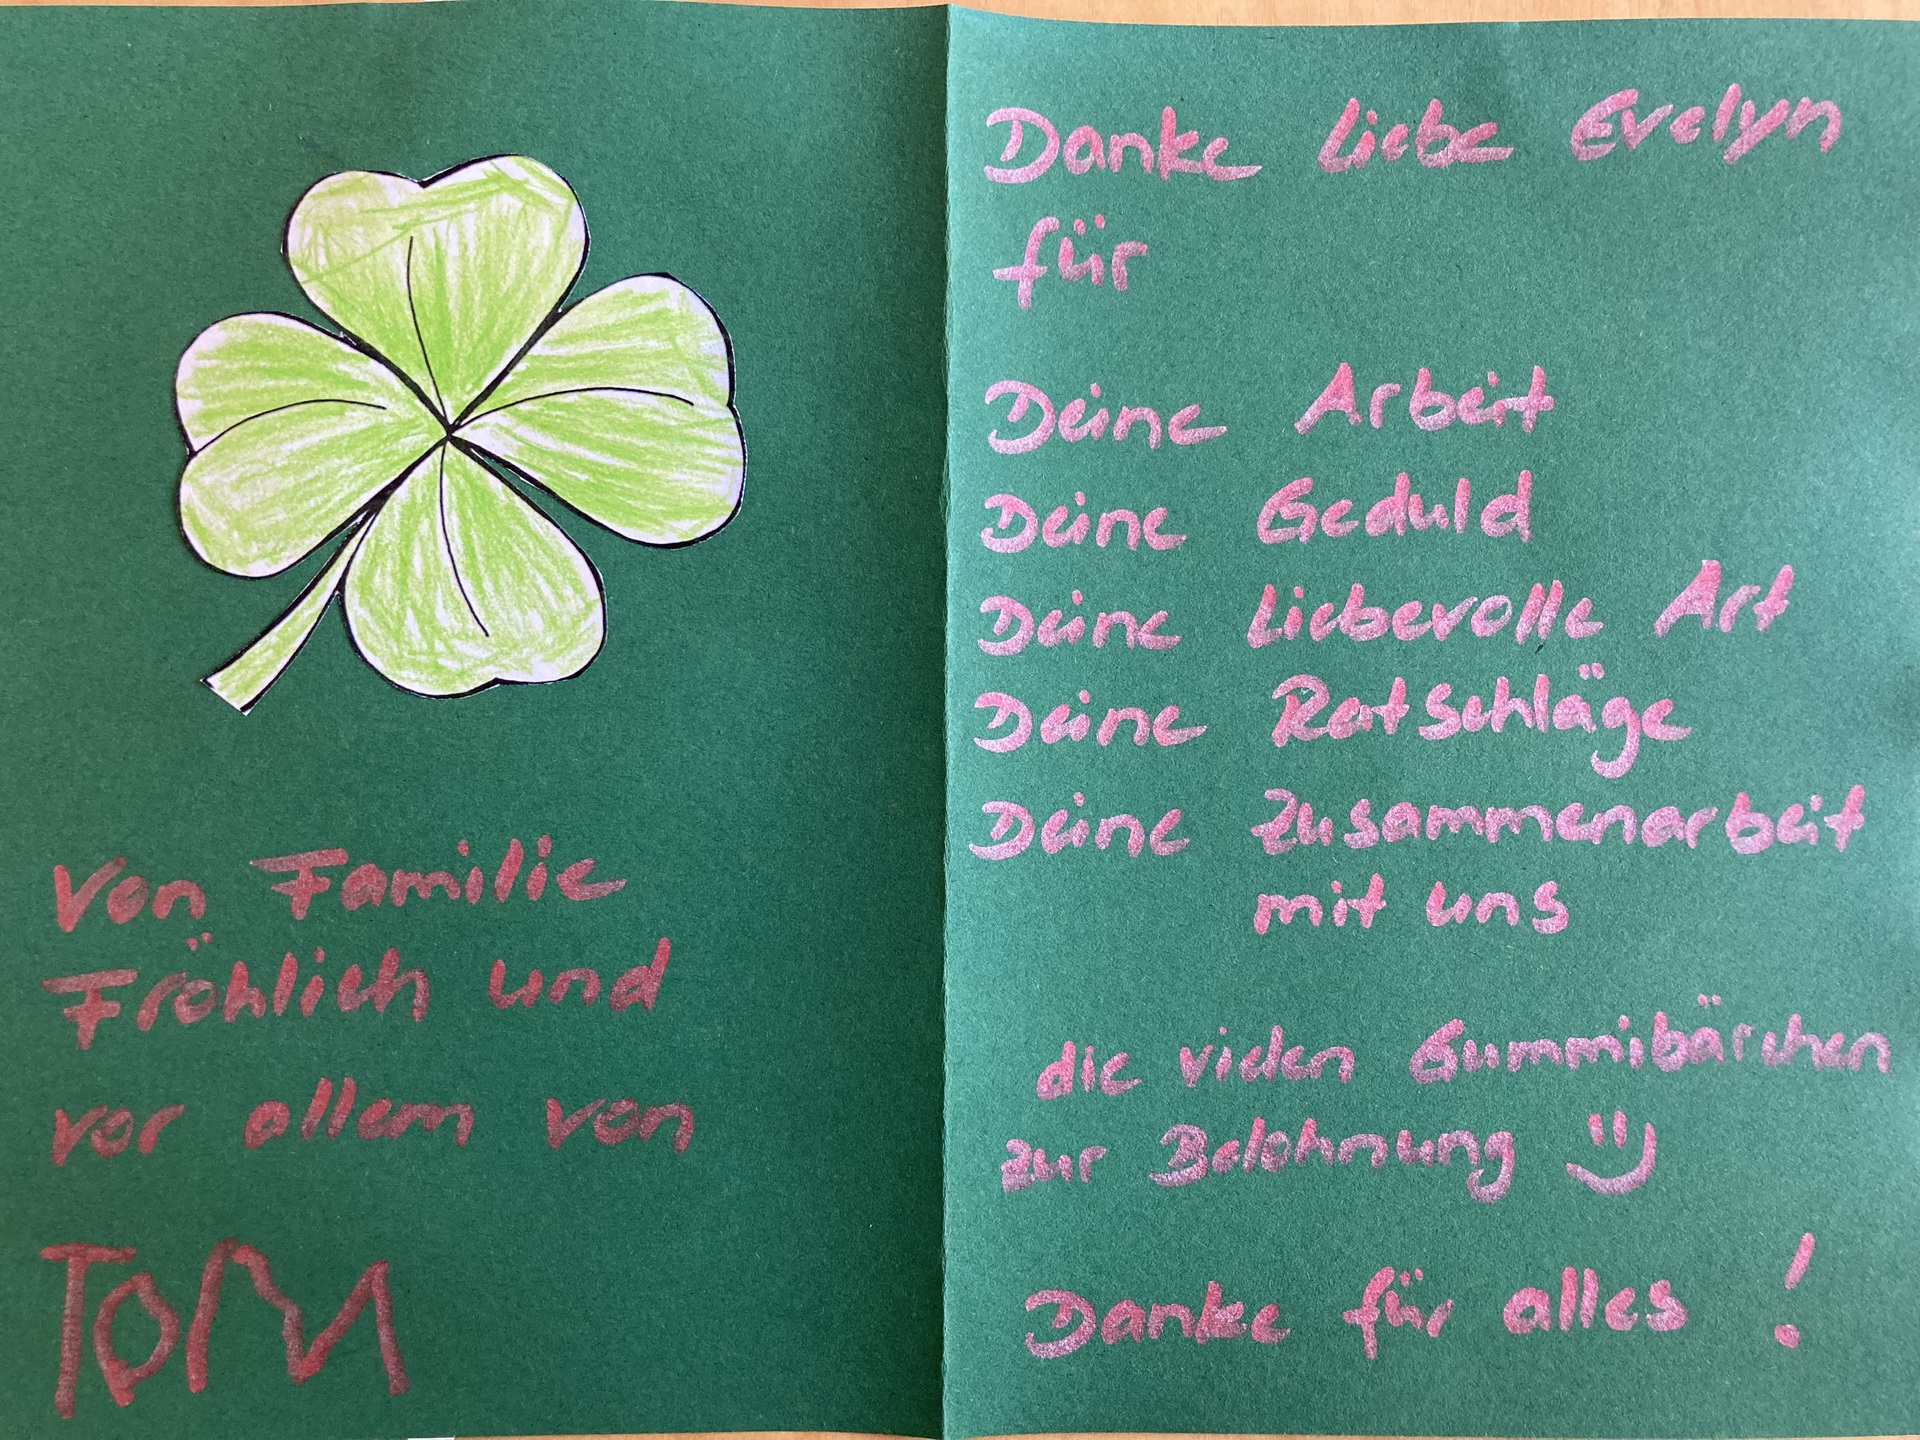 Von Familie
Fröhlich und
vor allem von
TOM
Danke Liebe Evelyn
für
Deine Arbeit
Deine Geduld
Deine Liebevolle Art
Deine Ratschläge
Deine Zusammenarbeit
mit uns
die vielen Gummibärchen
zur Belohnung
Danke für alles !